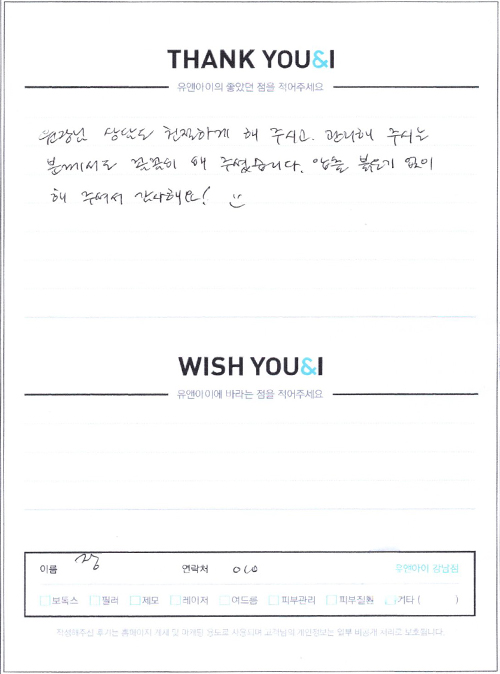 THANK YOU&I
유앤아이의 좋았던 점을 적어주세요
원장님 상담도 친절하게 해 주시고. 관리해 주시는
분께서도 꼼꼼히 해 주셨습니다. 압출 붉은기 없이
해 주셔서 감사해요! :)
WISH YOU&I
유앤아이에 바라는 점을 적어주세요
이름 연락처 010 유앤아이 강남점
보톡스 필러 제모 레이저 여드름 피부관리 피부질환 기타 ( )
작성해주신 후기는 홈페이지 게재 및 마케팅 용도로 사용되며 고객님의 개인정보는 일부 비공개 처리로 보호됩니다.